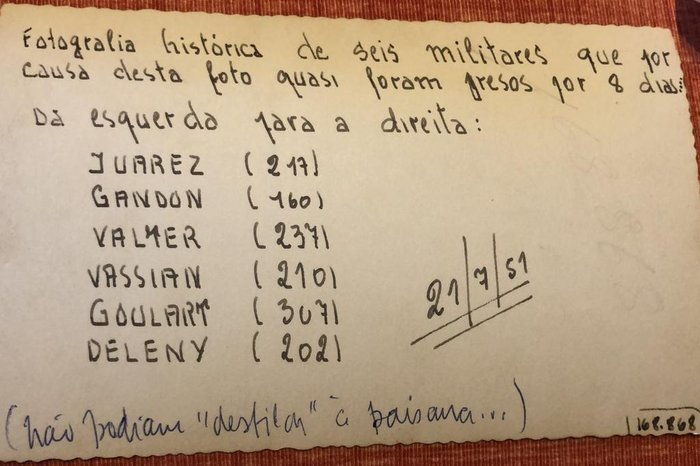 Fotografia histórica de seis militares que por
causa desta foto quasi foram presos por 8 dias:
Da esquerda para a direita:
JUAREZ (217)
GANDON (160)
VALMER (237)
VASSIAN (210)
GOULART (307)
DELENY (202)
21/7/51
(não podiam "desfilar" à paisana...)
168.868